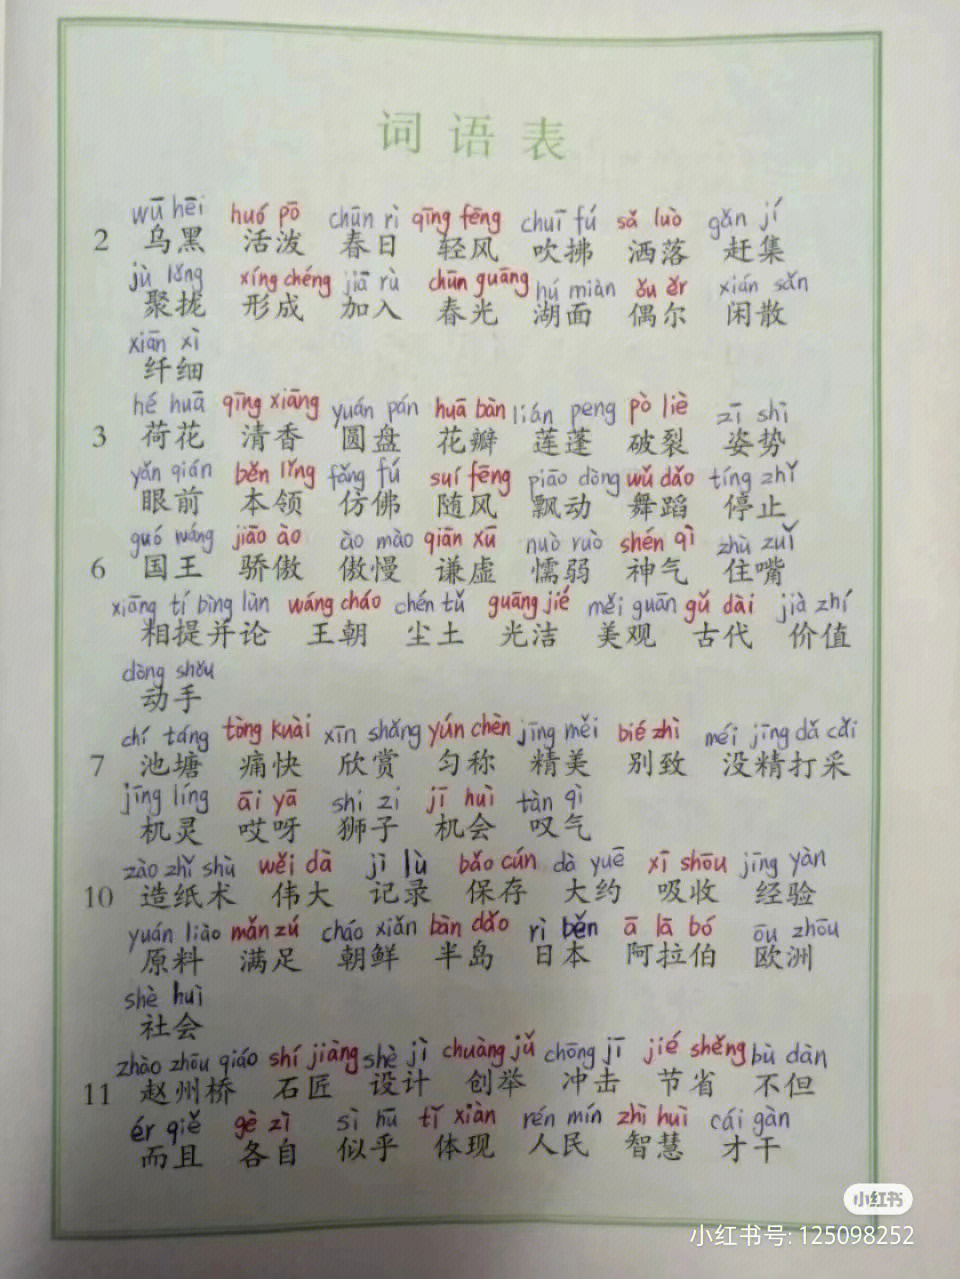 词语表
wū hēi huó pō chūn rì qīng fēng chuī fú sǎ luò gǎn jí
2 乌黑 活泼 春日 轻风 吹拂 洒落 赶集
jù lǒng xíng chéng jiā rù chūn guāng hú miàn ǒu ěr xián sǎn
聚拢 形成 加入 春光 湖面 偶尔 闲散
xiān xì
纤细
hé huā qīng xiāng yuán pán huā bàn lián peng pò liè zī shì
3 荷花 清香 圆盘 花瓣 莲蓬 破裂 姿势
yǎn qián běn lǐng fǎng fú suí fēng piāo dòng wǔ dǎo tíng zhǐ
眼前 本领 仿佛 随风 飘动 舞蹈 停止
guó wáng jiāo ào ào mào qiān xū nuò ruò shén qì zhù zuǐ
6 国王 骄傲 傲慢 谦虚 懦弱 神气 住嘴
xiāng tí bìng lùn wáng cháo chén tǔ guāng jié měi guān gǔ dài jià zhí
相提并论 王朝 尘土 光洁 美观 古代 价值
dòng shǒu
动手
chí táng tòng kuài xīn shǎng yún chèn jīng měi bié zhì méi jīng dǎ cǎi
7 池塘 痛快 欣赏 匀称 精美 别致 没精打采
jīng líng āi yā shi zi jī huì tàn qì
机灵 哎呀 狮子 机会 叹气
zào zhǐ shù wěi dà jì lù bǎo cún dà yuē xī shōu jīng yàn
10 造纸术 伟大 记录 保存 大约 吸收 经验
yuán liào mǎn zú cháo xiǎn bàn dǎo rì běn ā lā bó ōu zhōu
原料 满足 朝鲜 半岛 日本 阿拉伯 欧洲
shè huì
社会
zhào zhōu qiáo shí jiàng shè jì chuàng jǔ chōng jī jié shěng bù dàn
11 赵州桥 石匠 设计 创举 冲击 节省 不但
ér qiě gè zì sì hū tǐ xiàn rén mín zhì huì cái gàn
而且 各自 似乎 体现 人民 智慧 才干
小红书
小红书号: 125098252